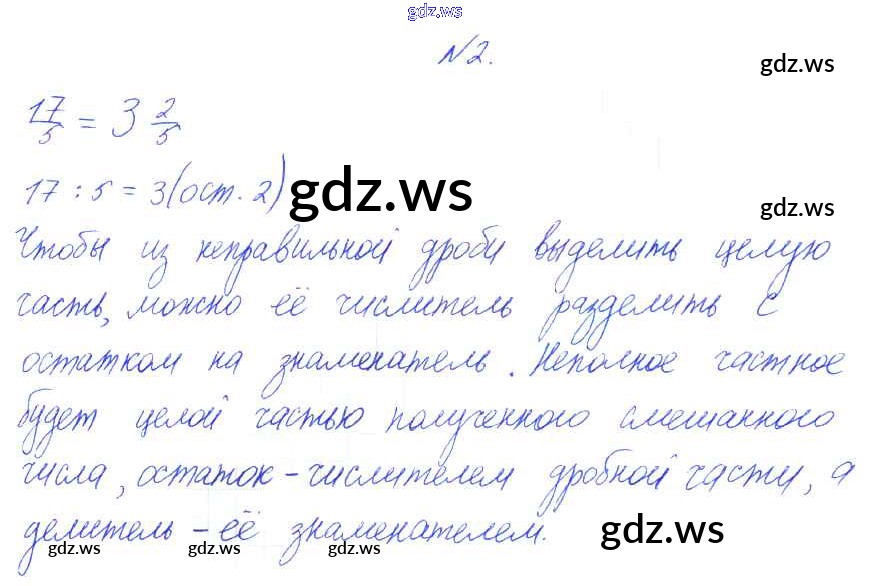 gdz.ws
№2.
gdz.ws
17/5 = 3 2/5
17 : 5 = 3 (ост. 2)
gdz.ws
gdz.ws
Чтобы из неправильной дроби выделить целую
часть, можно её числитель разделить с
остатком на знаменатель. Неполное частное
будет целой частью полученного смешанного
числа, остаток - числителем дробной части, а
делитель - её знаменателем.
gdz.ws
gdz.ws
gdz.ws
gdz.ws